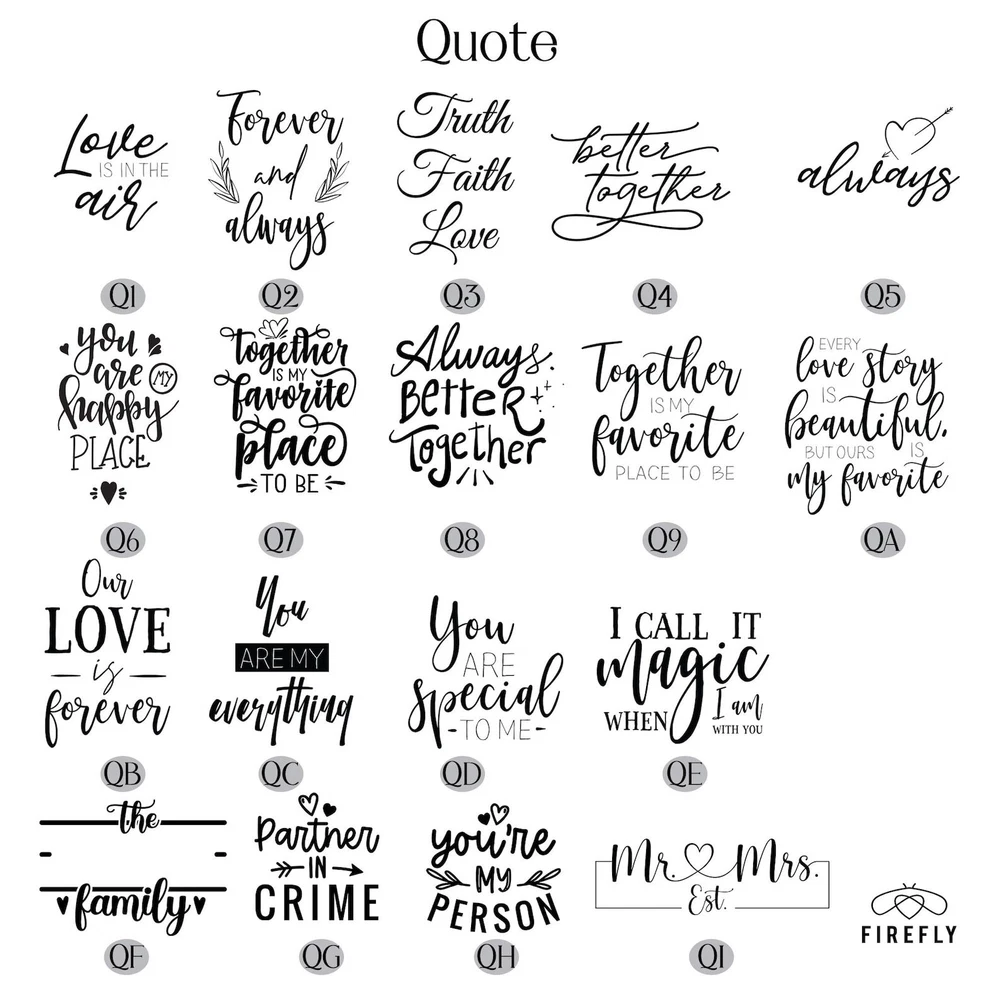 Quote
Love
IS IN THE
air
Q1
Forever
and
always
Q2
Truth
Faith
Love
Q3
better
together
Q4
always
Q5
you
are MY
happy
PLACE
Q6
together
IS MY
favorite
place
TO BE
Q7
Always
BETTER
Together
Q8
Together
IS MY
favorite
PLACE TO BE
Q9
EVERY
love story
IS
beautiful,
BUT OURS IS
my favorite
QA
Our
LOVE
is
forever
QB
You
ARE MY
everything
QC
You
ARE
special
-TO ME-
QD
I CALL IT
magic
WHEN I am
WITH YOU
QE
the
family
QF
Partner
IN
CRIME
QG
you're
MY
PERSON
QH
Mr. Mrs.
Est.
QI
FIREFLY